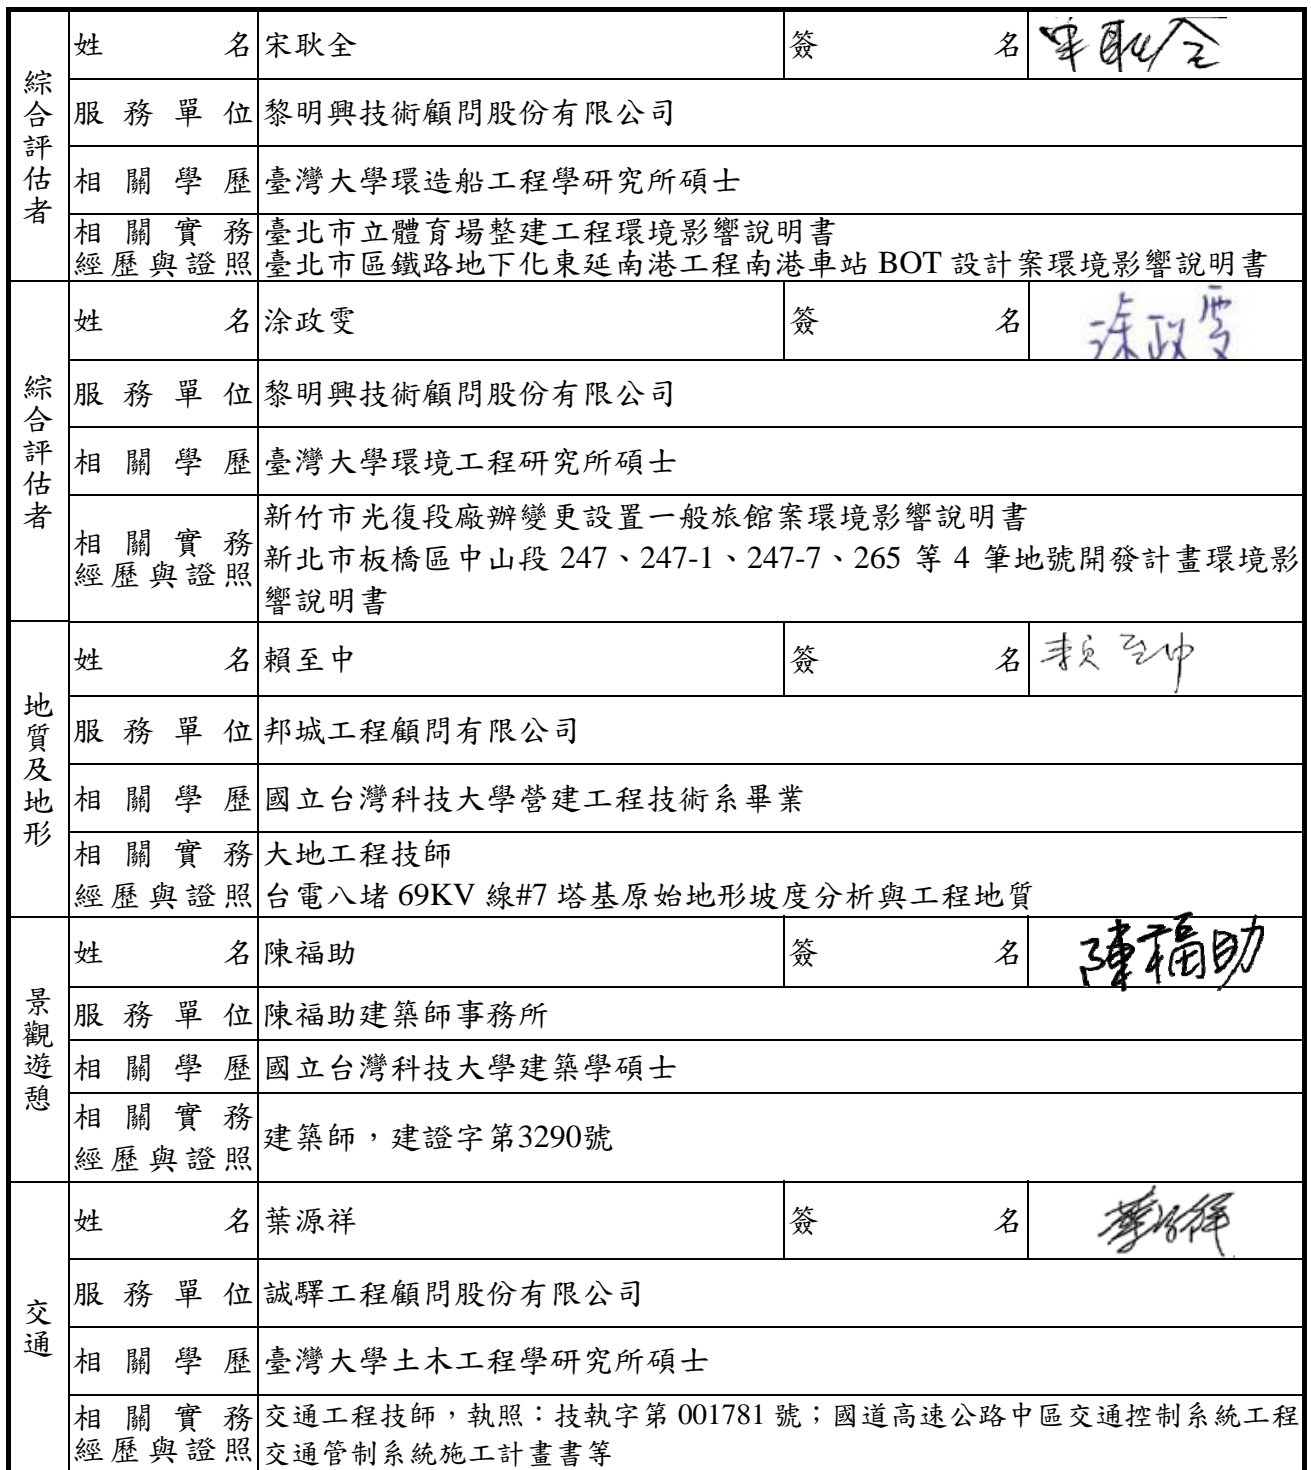 綜合評估者
姓名 宋耿全 簽名 宋耿全
服務單位 黎明興技術顧問股份有限公司
相關學歷 臺灣大學環造船工程學研究所碩士
相關實務經歷與證照 臺北市立體育場整建工程環境影響說明書
臺北市區鐵路地下化東延南港工程南港車站 BOT 設計案環境影響說明書
綜合評估者
姓名 涂政雯 簽名 涂政雯
服務單位 黎明興技術顧問股份有限公司
相關學歷 臺灣大學環境工程研究所碩士
相關實務經歷與證照 新竹市光復段廠辦變更設置一般旅館案環境影響說明書
新北市板橋區中山段 247、247-1、247-7、265 等 4 筆地號開發計畫環境影
響說明書
地質及地形
姓名 賴至中 簽名 賴至中
服務單位 邦城工程顧問有限公司
相關學歷 國立台灣科技大學營建工程技術系畢業
相關實務 大地工程技師
經歷與證照 台電八堵 69KV 線#7 塔基原始地形坡度分析與工程地質
景觀遊憩
姓名 陳福助 簽名 陳福助
服務單位 陳福助建築師事務所
相關學歷 國立台灣科技大學建築學碩士
相關實務經歷與證照 建築師，建證字第3290號
交通
姓名 葉源祥 簽名 葉源祥
服務單位 誠驛工程顧問股份有限公司
相關學歷 臺灣大學土木工程學研究所碩士
相關實務 交通工程技師，執照：技執字第 001781 號；國道高速公路中區交通控制系統工程
經歷與證照 交通管制系統施工計畫書等